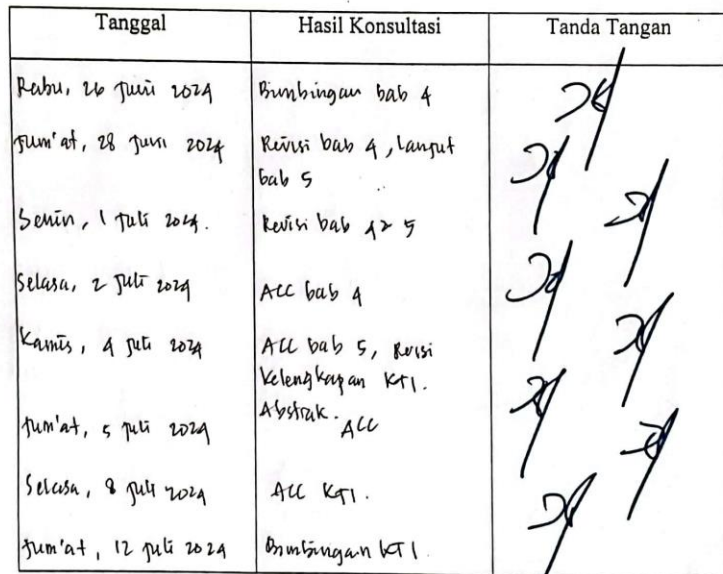 Tanggal Hasil Konsultasi Tanda Tangan
Rabu, 26 Juni 2024 Bimbingan bab 4
Jum'at, 28 Juni 2024 Revisi bab 4, lanjut
bab 5
Senin, 1 Juli 2024. Revisi bab 4 5
Selasa, 2 Juli 2024 ACC bab 4
Kamis, 4 Juli 2024 ACC bab 5, Revisi
Kelengkapan KTI.
Abstrak.
Jum'at, 5 Juli 2024 ACC
Selasa, 8 Juli 2024 ACC KTI.
Jum'at, 12 Juli 2024 Bimbingan KTI